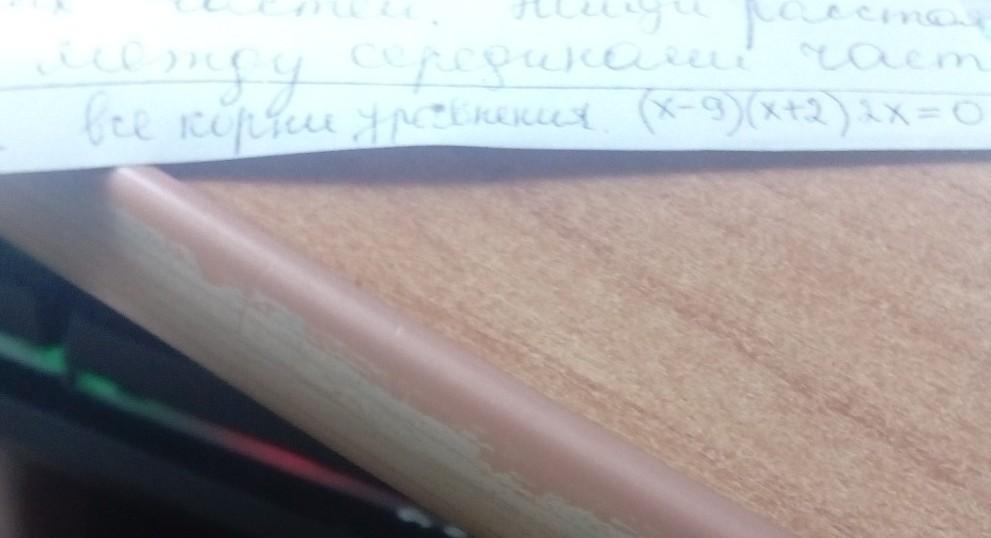 частей. Найди
между серединами част
все корни уравнения. (x-9)(x+2)2x=0